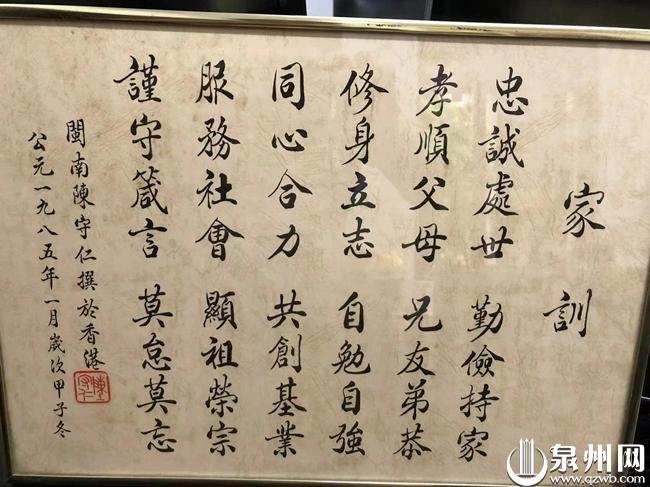 家訓
忠誠處世 勤儉持家
孝順父母 兄友弟恭
修身立志 自勉自強
同心合力 共創基業
服務社會 顯祖榮宗
謹守箴言 莫怠莫忘
閩南陳守仁撰於香港
陳守仁
公元一九八五年一月歲次甲子冬
泉州网
www.qzwb.com